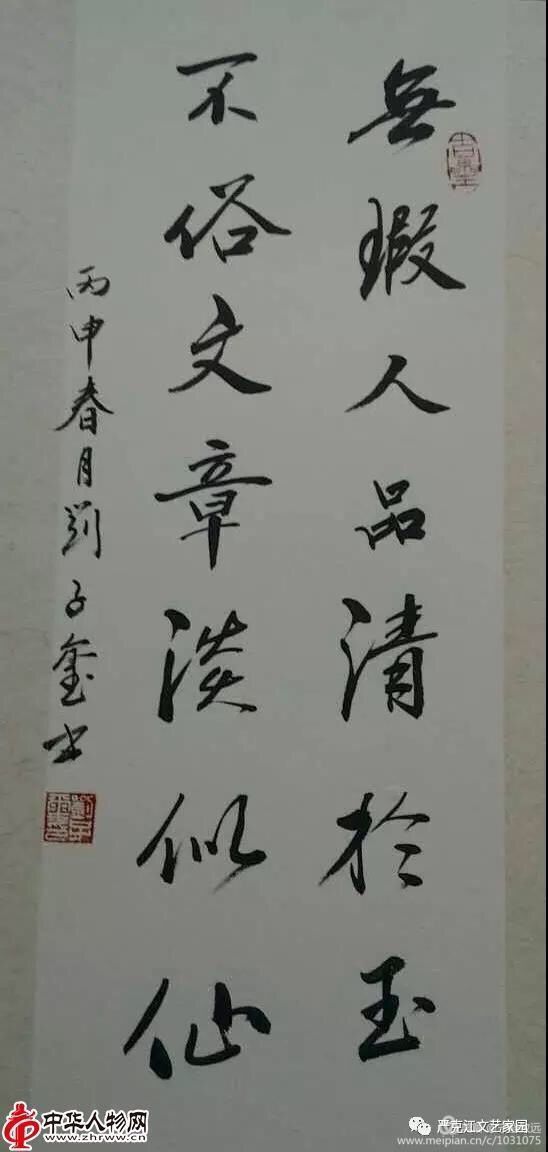 無瑕人品清於玉
不俗文章淡似仙
丙申春月劉子奎书
中华人物网
www.zhrww.cn
严克江文艺家园
www.meipian.cn/c/1031075